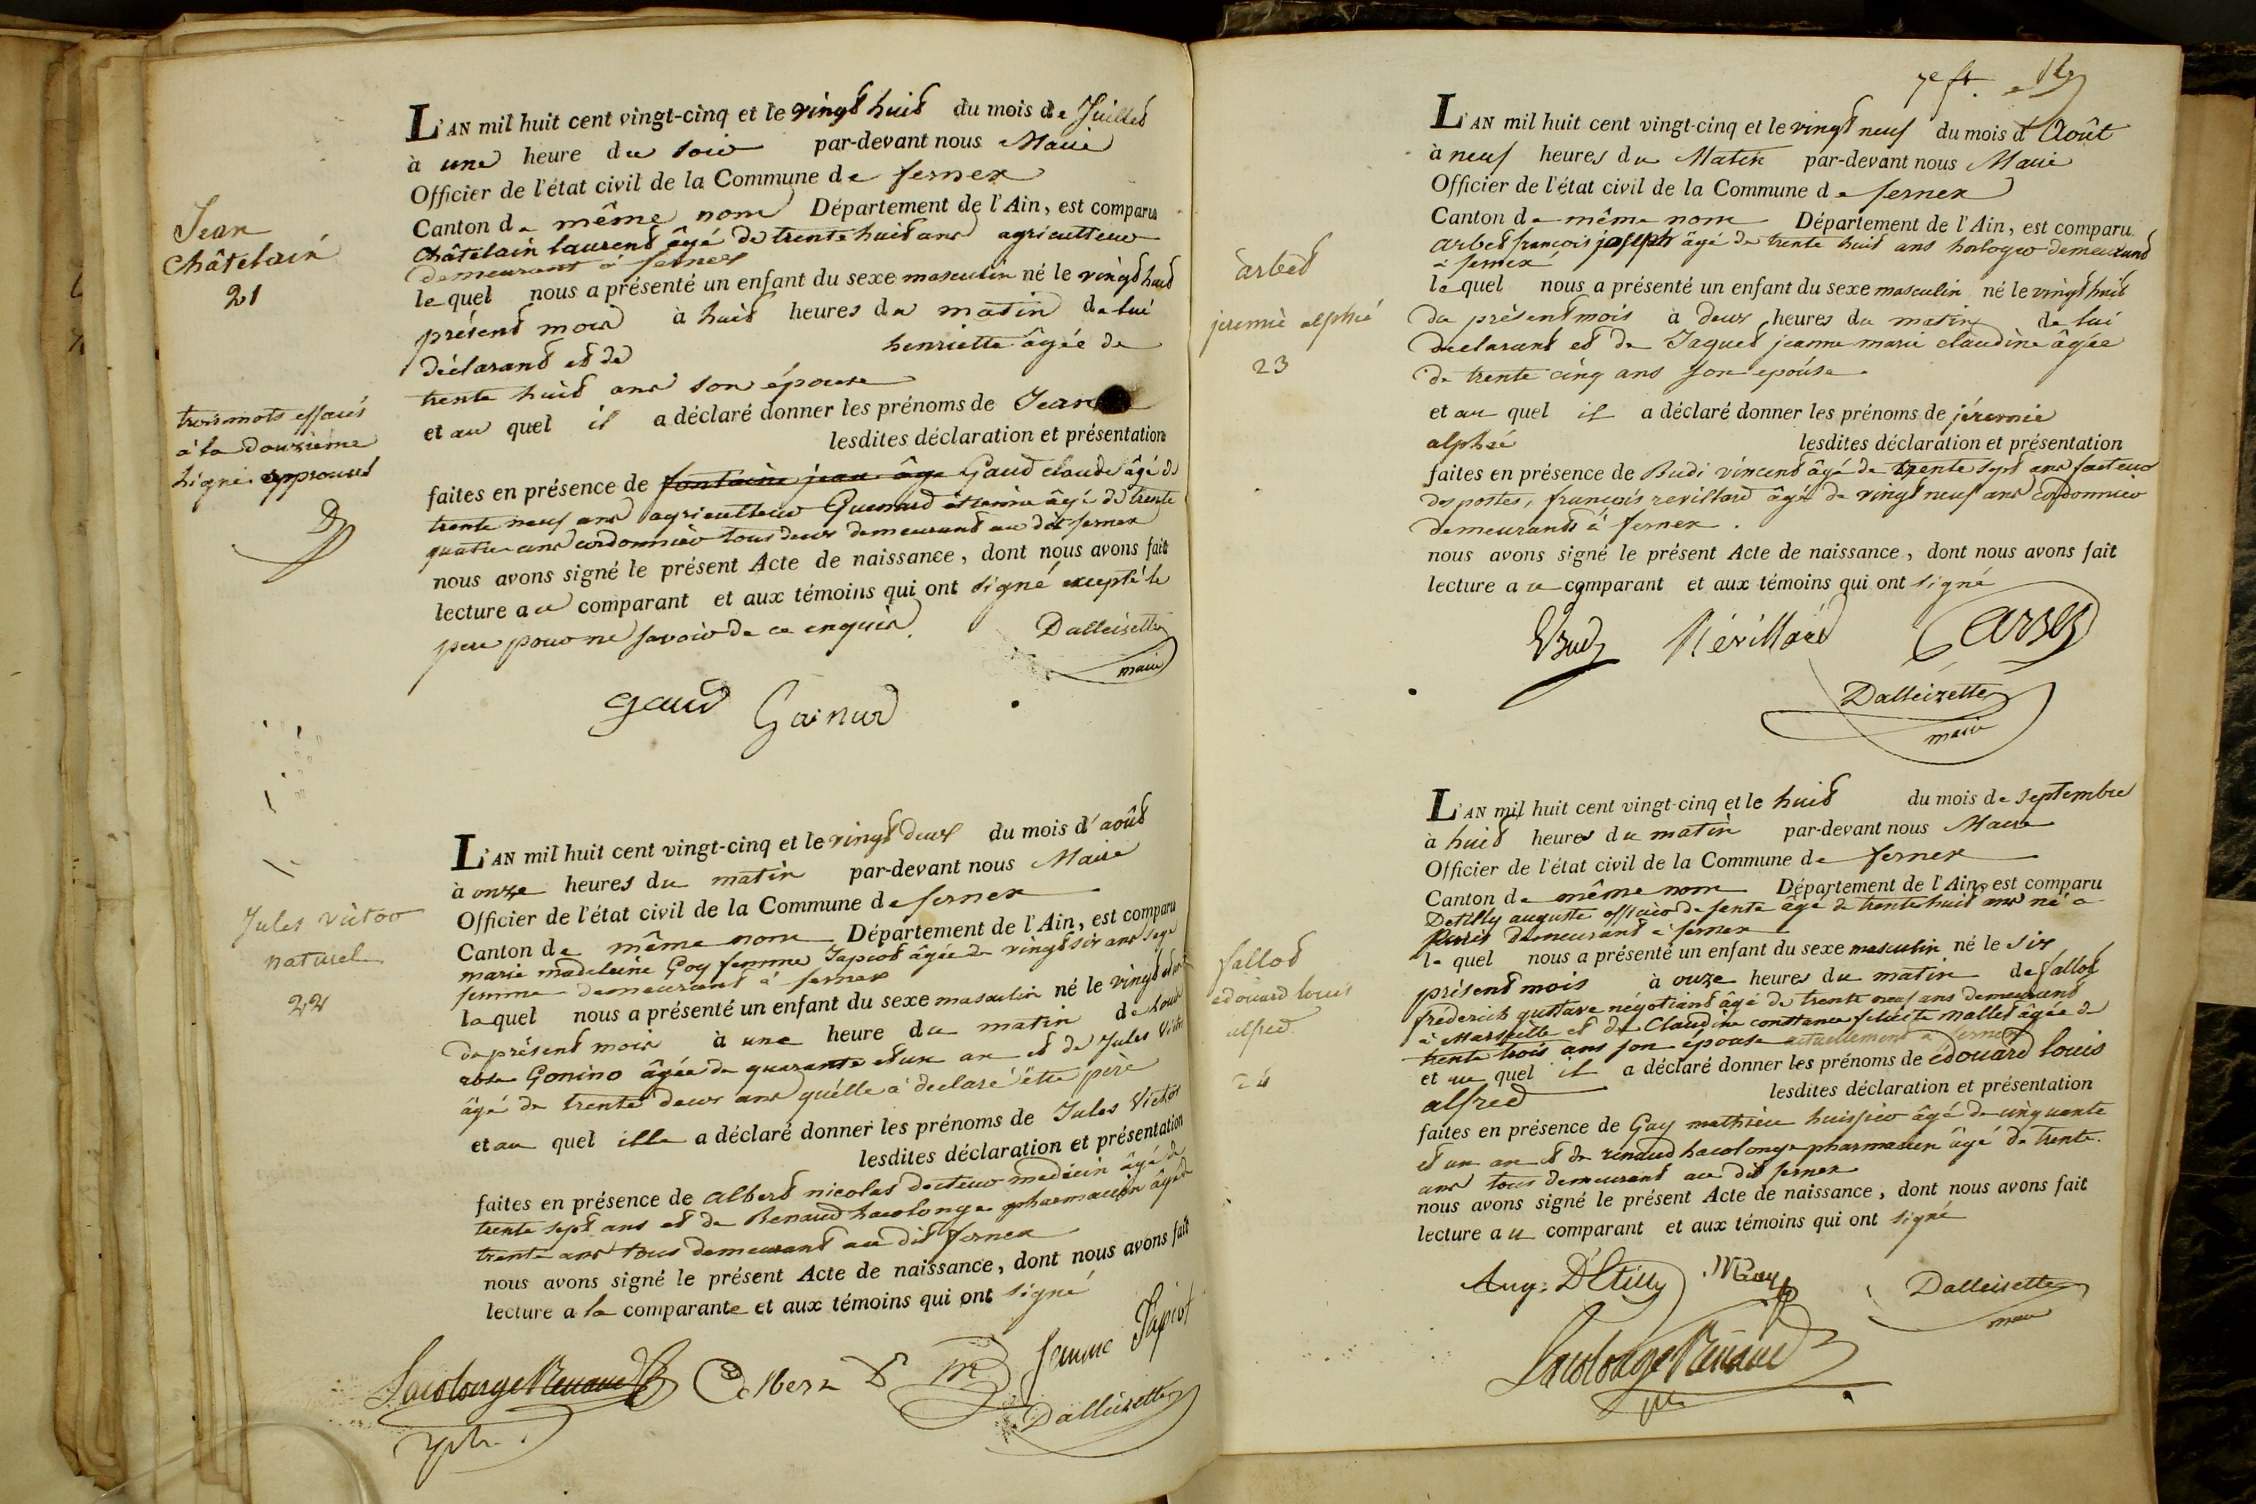 Jean
Châtelain
21
L'AN mil huit cent vingt-cinq et le vingt huit du mois de Juillet
à une heure du soir par-devant nous Maire
Officier de l'état civil de la Commune de fernex
Canton de même nom Département de l'Ain, est comparu
Châtelain laurent âgé de trente huit ans agriculteur
demeurant à fernex
lequel nous a présenté un enfant du sexe masculin né le vingt huit
présent mois à huit heures du matin de lui
déclarant et de henriette âgée de
trente huit ans son épouse
et au quel il a déclaré donner les prénoms de Jean
lesdites déclaration et présentation
trois mots effacés
à la douzième
ligne approuvés
D
faites en présence de fontaine jean âgé Gaud claude âgé de
trente neuf ans agriculteur Guenard étienne âgé de trente
quatre ans cordonnier tous deux demeurant au dit fernex
nous avons signé le présent Acte de naissance, dont nous avons fait
lecture au comparant et aux témoins qui ont signé excepté le
pere pour ne savoir de ce enquis
Dalleizette
maire
gaud Gainard
Jules victor
naturel
22
L'AN mil huit cent vingt-cinq et le vingt deux du mois d'août
à onze heures du matin par-devant nous Maire
Officier de l'état civil de la Commune de fernex
Canton de même nom Département de l'Ain, est comparu
marie madeleine Goy femme Japiot âgée de vingt six ans sage
femme demeurant à fernex
laquel nous a présenté un enfant du sexe masculin né le vingt et un
du présent mois à une heure du matin de louise
rose Gonino âgée de quarante et un an et de Jules Victor
âgé de trente deux ans qu'elle a declaré être père
et au quel ille a déclaré donner les prénoms de Jules Victor
lesdites déclaration et présentation
faites en présence de albert nicolas docteur medecin âgé de
trente sept ans et de Renaud Lacolonge pharmacien âgé de
trente ans tous demeurant au dit fernex
nous avons signé le présent Acte de naissance, dont nous avons fait
lecture a la comparante et aux témoins qui ont signé
Lacolonge Renaud Albert D m femme Japiot
ph. Dalleizette
7e ft.
arbet
jeremie alphée
23
L'AN mil huit cent vingt-cinq et le vingt neuf du mois d'Août
à neuf heures du Matin par-devant nous Maire
Officier de l'état civil de la Commune de fernex
Canton de même nom Département de l'Ain, est comparu
arbet françois joseph âgé de trente huit ans horloger demeurant
à fernex
lequel nous a présenté un enfant du sexe masculin né le vingt huit
du présent mois à deux heures du matin de lui
declarant et de Jaquet jeanne marie claudine âgée
de trente cinq ans son epouse
et au quel il a déclaré donner les prénoms de jéremie
alphée lesdites déclaration et présentation
faites en présence de Budi vincent âgé de trente sept ans facteur
des postes, françois revillard âgé de vingt neuf ans cordonnier
demeurants à fernex.
nous avons signé le présent Acte de naissance, dont nous avons fait
lecture au comparant et aux témoins qui ont signé
Budy Révillard arbet
Dalleizette
maire
fallot
edouard louis
alfred
24
L'AN mil huit cent vingt-cinq et le huit du mois de septembre
à huit heures du matin par-devant nous Maire
Officier de l'état civil de la Commune de fernex
Canton de même nom Département de l'Ain, est comparu
Detilly auguste officier de sente âgé de trente huit ans né a
Paris demeurant à fernex
lequel nous a présenté un enfant du sexe masculin né le six
présent mois à onze heures du matin de fallot
frederick gustave négotiant âgé de trente neuf ans demeurant
à Marseille et de Claudine constance felicité mallet âgée de
trente trois ans son épouse actuellement à fernex
et au quel il a déclaré donner les prénoms de édouard louis
alfred lesdites déclaration et présentation
faites en présence de Gay mathieu huissier âgé de cinquante
et un an et de renaud lacolonge pharmacien âgé de trente
ans tous demeurant au dit fernex
nous avons signé le présent Acte de naissance, dont nous avons fait
lecture au comparant et aux témoins qui ont signé
Aug. D'Etilly MGay Dalleizette
maire
Lacolonge Renaud
ph.